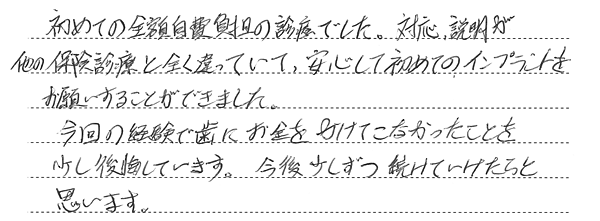 初めての全額自費負担の診療でした。対応、説明が
他の保険診療と全く違っていて、安心して初めてのインプラントを
お願いすることができました。
今回の経験で歯にお金を分けてこなかったことを
少し後悔しています。今後少しずつ続けていけたらと
思います。